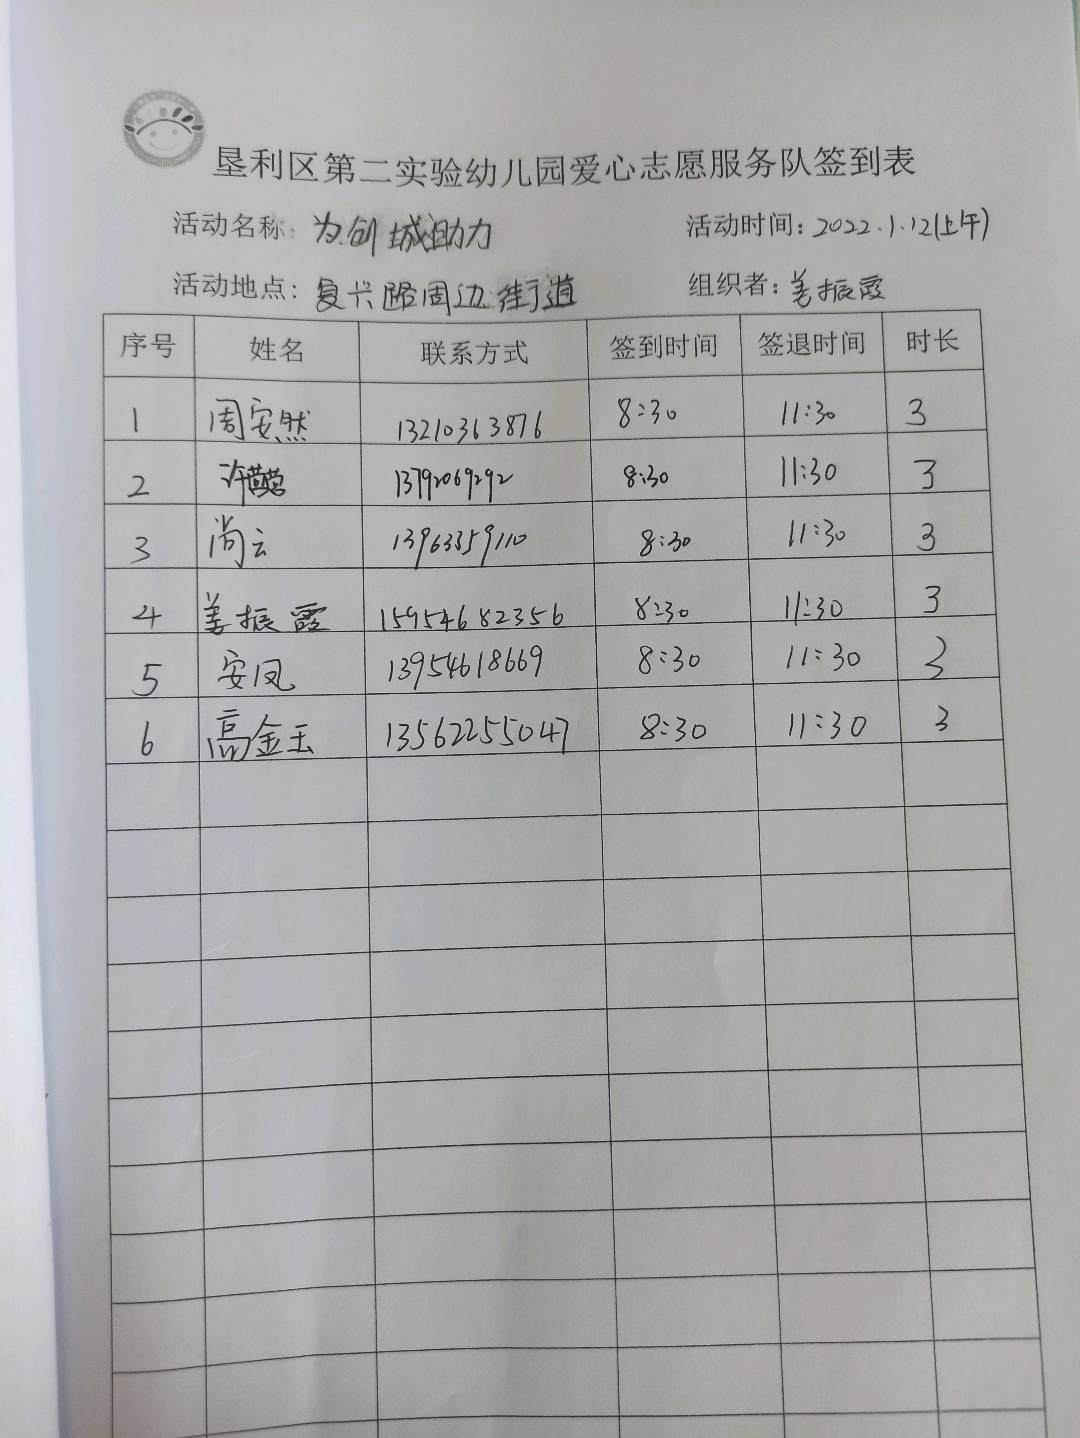 垦利区第二实验幼儿园爱心志愿服务队签到表
活动名称: 为创城助力 活动时间: 2022.1.12(上午)
活动地点: 复兴路周边街道 组织者: 姜振霞
序号 姓名 联系方式 签到时间 签退时间 时长
1 周安然 13210363876 8:30 11:30 3
2 许 13792069292 8:30 11:30 3
3 尚云 13963359110 8:30 11:30 3
4 姜振霞 15954682356 8:30 11:30 3
5 安凤 13954618669 8:30 11:30 3
6 高金玉 13562255047 8:30 11:30 3